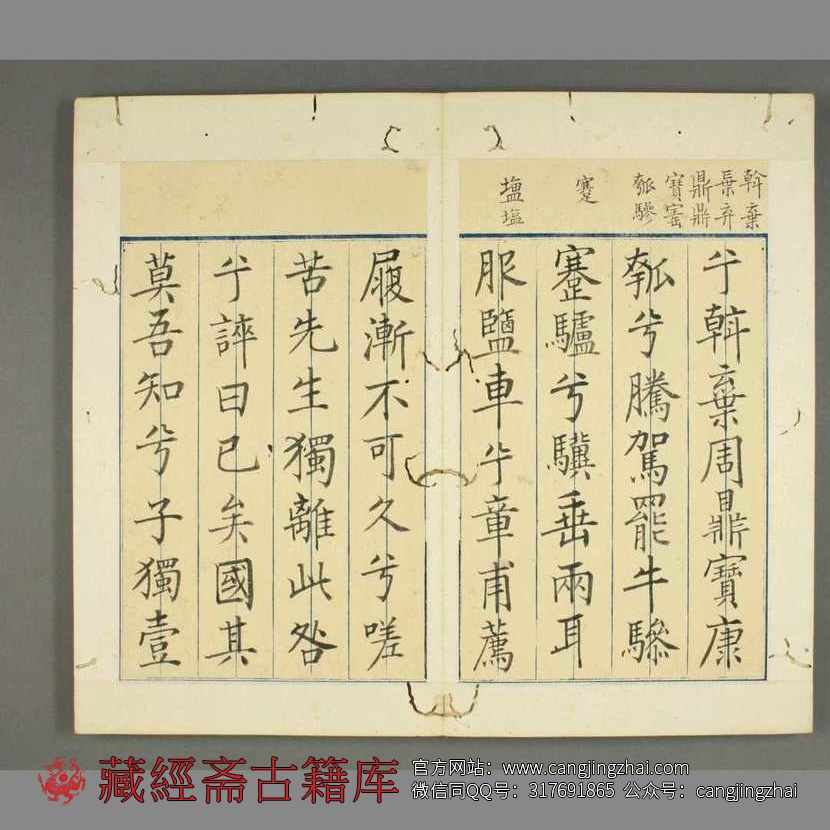 斡棄
㒸弃
鼎鼎
寶寚
瓠驂
蹇
塩塩
兮斡棄周鼎寶康
瓠兮騰駕罷牛驂
蹇驢兮驥垂兩耳
服鹽車兮章甫薦
屨漸不可久兮嗟
苦先生獨離此咎
兮誶曰已矣國其
莫吾知兮子獨壹
藏經斋古籍库
官方网站：www.cangjingzhai.com
微信同QQ号：317691865 公众号：cangjingzhai